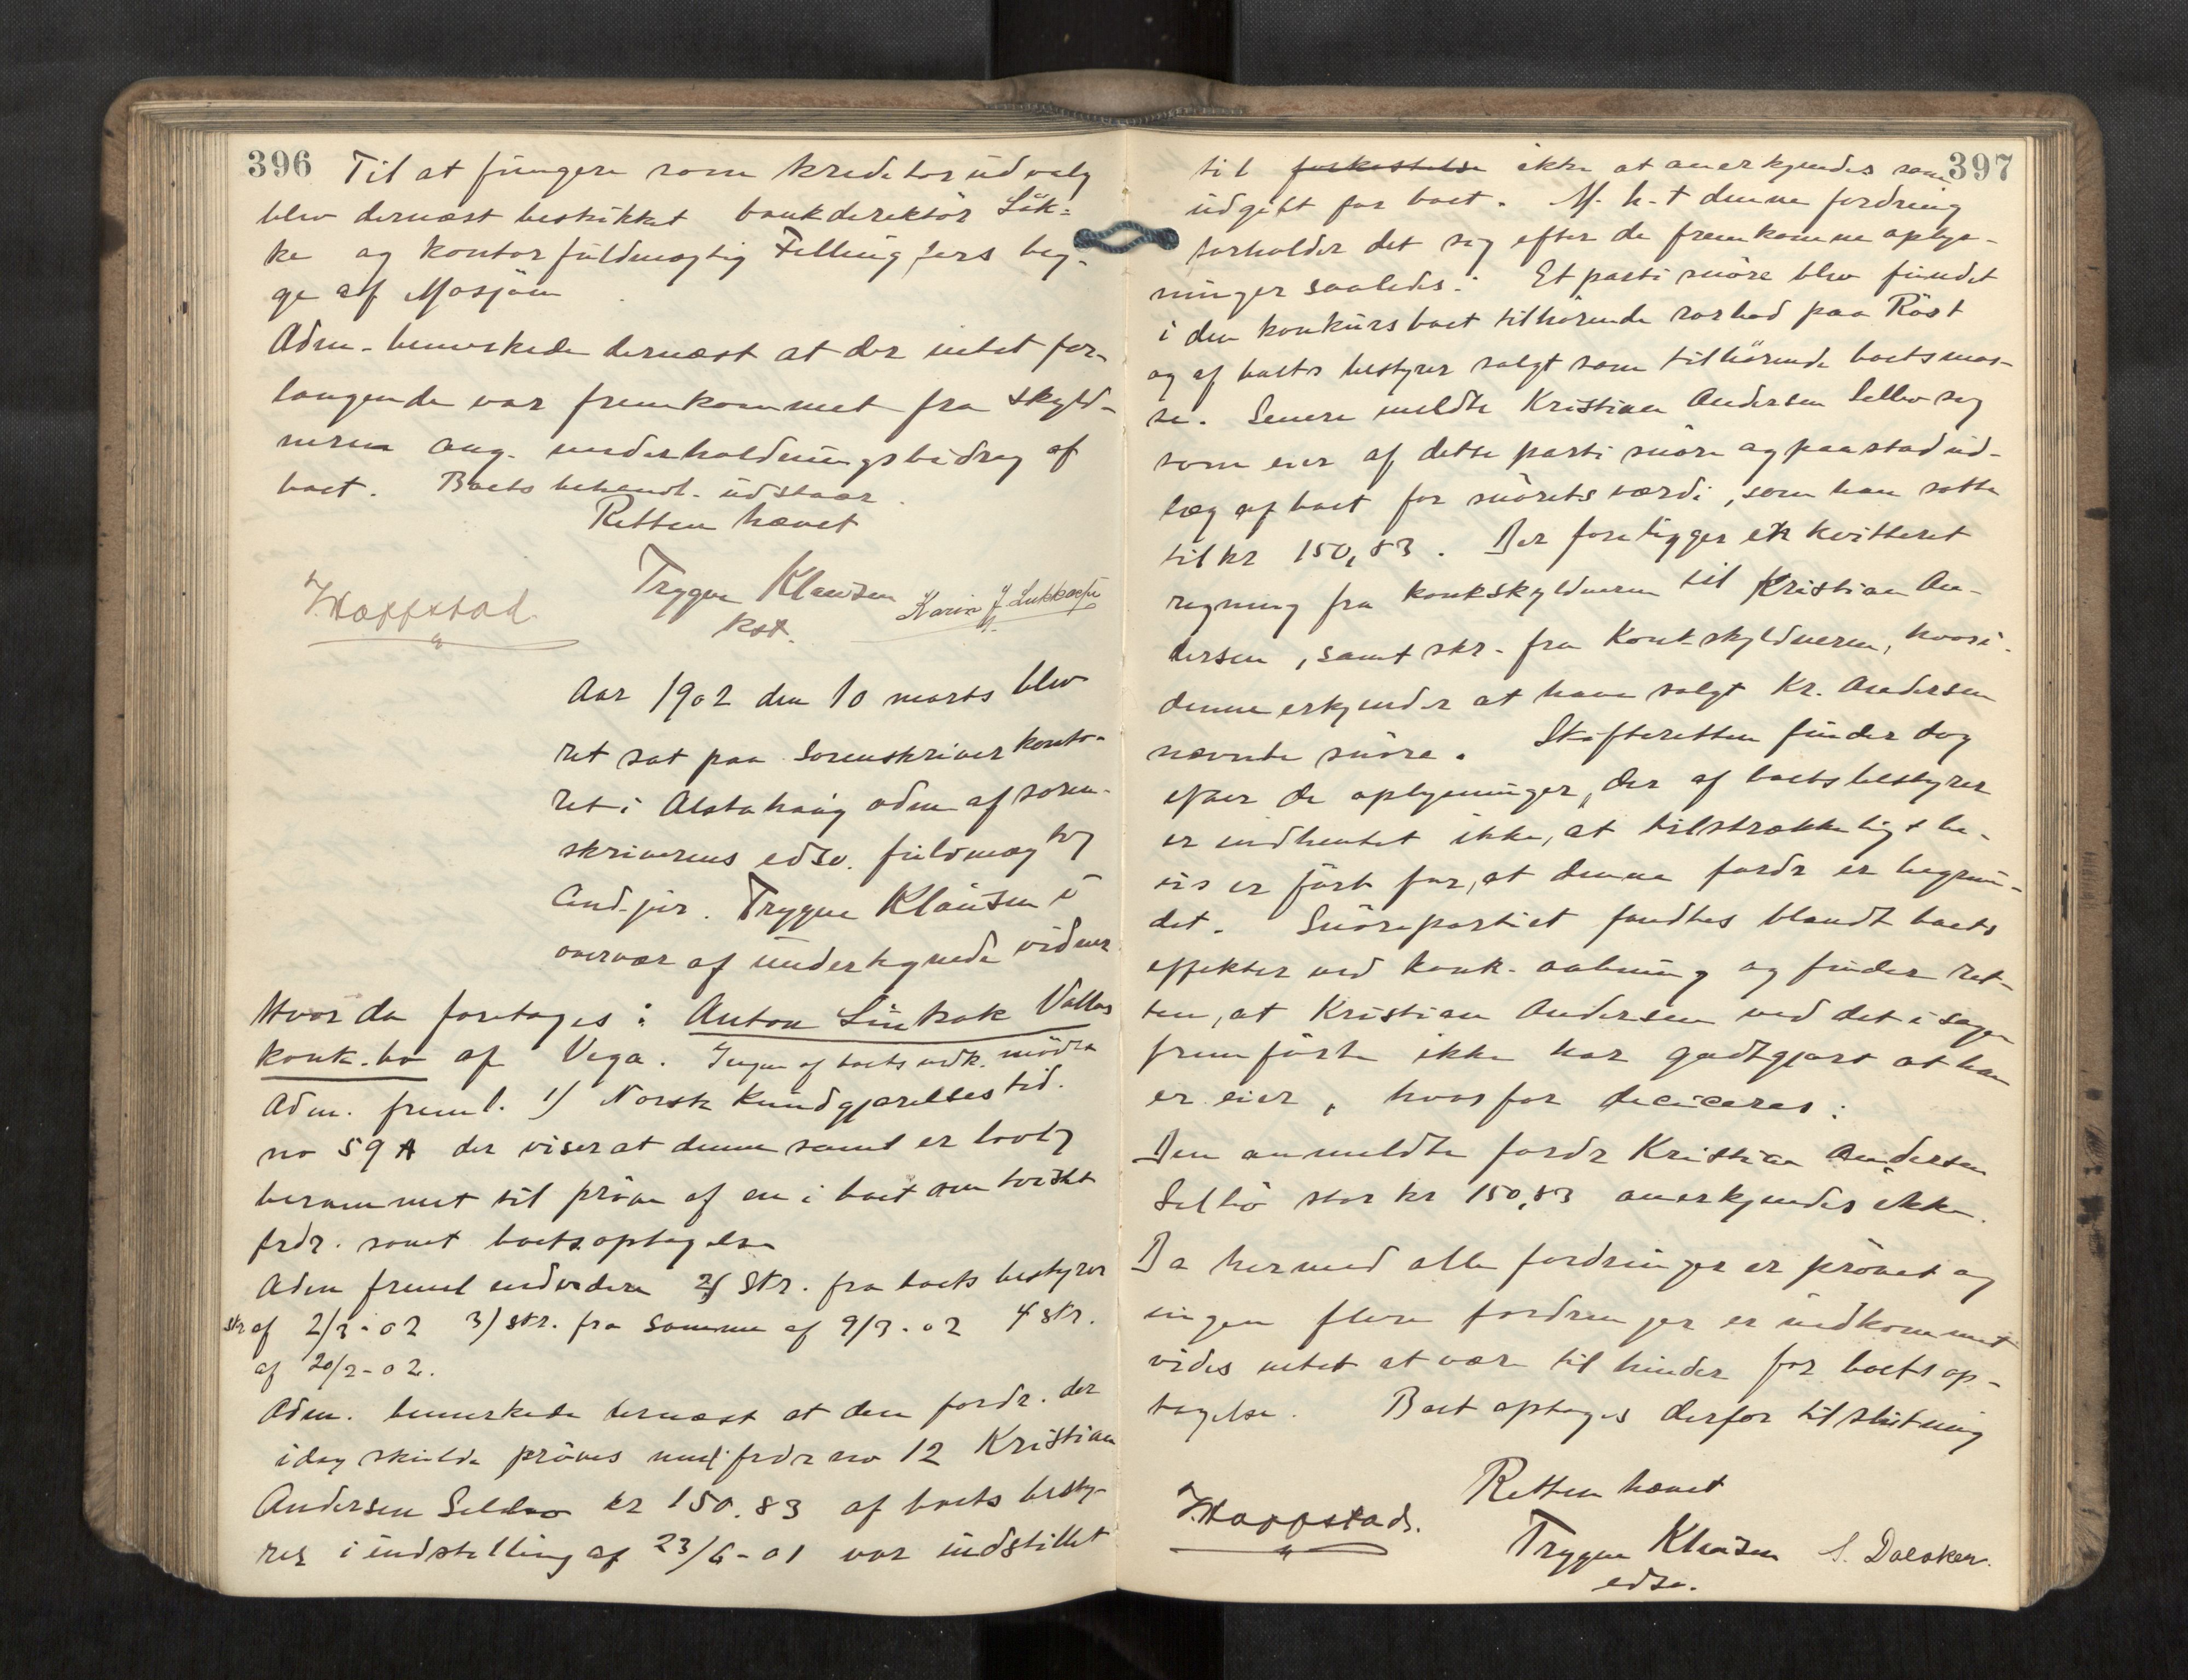 396
Til at fungere som kreditorudvalg
blev dernæst beskikket bankdirektör Lük=
ke og kontorfuldmægtig Fellingfors beg-
ge af Mosjöen
Adm. bemerkede dernæst at der intet for-
langende var fremkommet fra skyld-
neren ang. underholdningsbidrag af
boet. Boets behandl. udstaar.
Retten hævet
Trygve Klausen
kst.
Aar 1902 den 10 marts blev
ret sat paa Sorenskriverkonto-
ret i Alstahaug adm af soren-
skriverens edsv. fuldmægtig
Cand. jur. Trygve Klausen i
overvær af undertegnede vidner
Hvor da foretages: Anton Vallas
konk. bo af Vega. Ingen af boets vedk. mödte
Adm. freml. 1) Norsk Kundgjørelsestid.
no 59 A der viser at denne saml er lovlig
berammet til pröve af en i boet omtvistet
frdr. samt boets optagelse
Adm freml endvidere 2) Skr. fra boets bestyrer
af 2/3-02 3) skr. fra samme af 9/3-02 4 skr.
af 20/2-02.
Adm. bemerkede dernæst at den fordr. der
idag skulde pröves nml frdr no 12 Kristian
Andersen kr 150.83 af boets besty-
rer i indstilling af 23/6-01 var indstillet
397
til forkastelse ikke at anerkjendes som
udgift for boet. M. h. t denne fordring
forholder det sig efter de fremkomne oplys-
ninger saaledes: Et parti snöre blev fundet
i den konkursboet tilhörende rorbod paa Röst
og af boets bestyrer solgt som tilhörende boets mas-
se. Senere meldte Kristian Andersen sig
som eier af dette parti snöre og paastod ud-
læg af boet for snörets værdi, som han satte
til kr 150,83. Der foreligger en kvitteret
regning fra konkskyldneren til Kristian An-
dersen, samt skr. fra Konkskyldneren, hvori
denne erkjender at have solgt Kr. Andersen
nævnte snöre. Skifteretten finder dog
efter de oplysninger, der af boets bestyrer
er indhentet ikke, at tilstrækkeligt be-
vis er fört for, at denne fordr er begrun-
det. Snörepartiet fandtes blandt boets
effekter ved konk. aabning og finder ret-
ten, at Kristian Andersen ved det i sagen
fremförte ikke har godtgjort at han
er eier, hvorfor decideres:
Den anmeldte fordr Kristian Andersen
stor kr 150,83 anerkjendes ikke.
Da hermed alle fordringer er prövet og
ingen flere fordringer er indkommet
vides intet at være til hinder for boets op-
tagelse. Boet optages derfor til slutning
Retten hævet
Trygve Klausen
edsv.